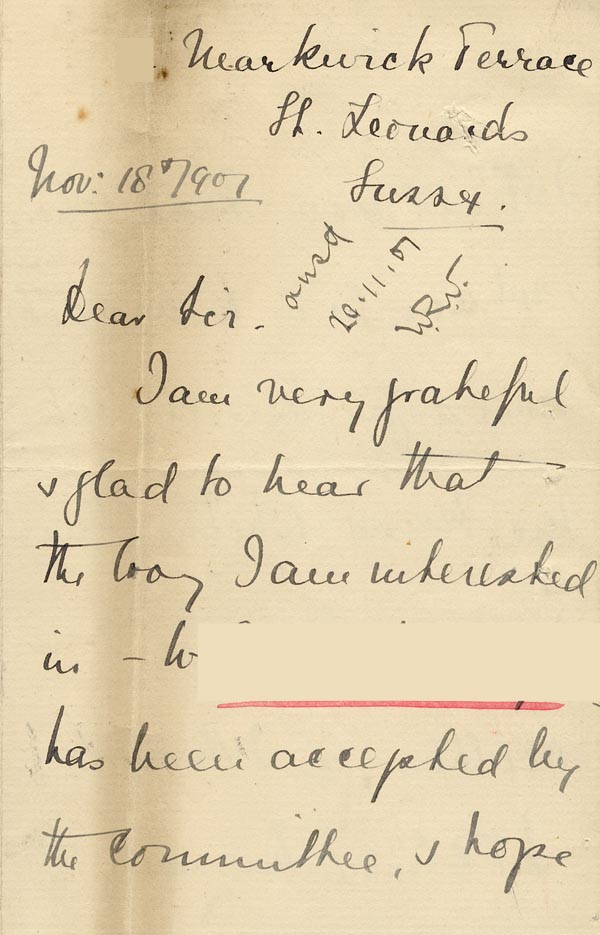 Markwick Terrace
St. Leonards
Nov: 18th 1907
Sussex.
ansd
20.11.07
Dear Sir.
I am very grateful
& glad to hear that
the boy I am interested
in – W
has been accepted by
the committee, & hope